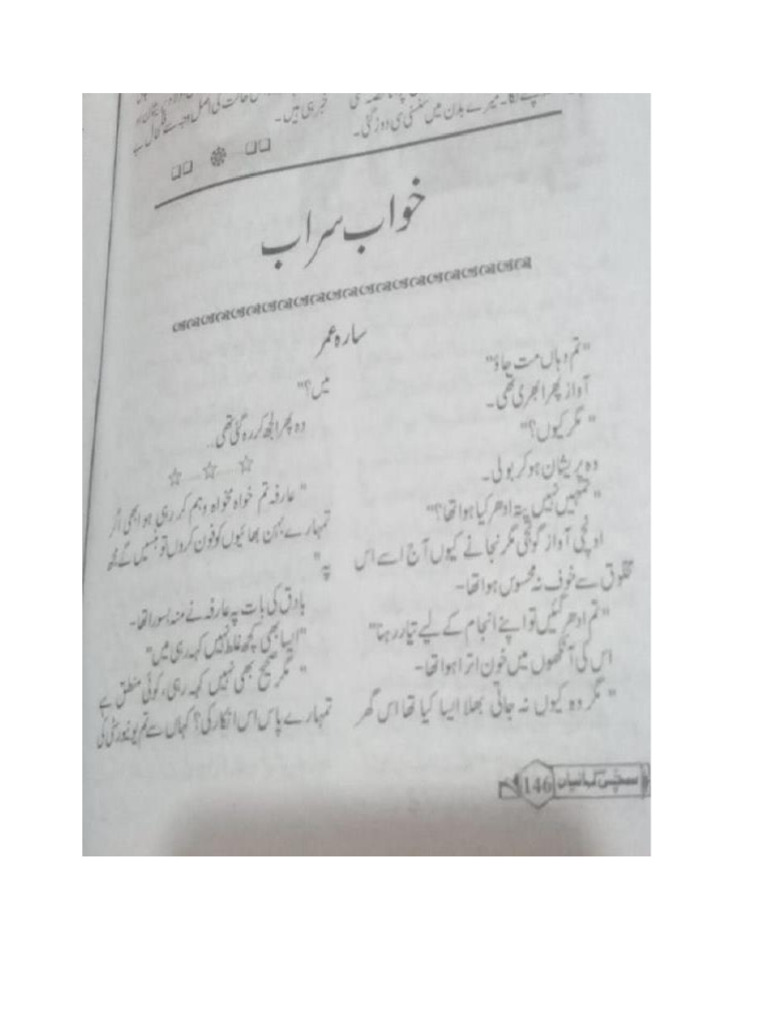 لگا۔ میرے بدن میں سنسنی سی دوڑ گئی۔
حالت کی اصل وجہ سے
خبر ہی ہیں۔
خواب سراب
سارہ عمر
"تم وہاں مت جاؤ"
آواز پھر ابھری تھی۔
"مگر کیوں؟"
وہ پریشان ہو کر بولی۔
"تمہیں نہیں پتہ ادھر کیا ہوا تھا؟"
اونچی آواز گونجی مگر نجانے کیوں آج اسے اس
مخلوق سے خوف نہ محسوس ہوا تھا۔
"تم ادھر گئیں تو اپنے انجام کے لیے تیار رہنا"
اس کی آنکھوں میں خون اترا ہوا تھا۔
"مگر وہ کیوں نہ جاتی بھلا ایسا کیا تھا اس گھر
میں؟"
وہ پھر الجھ کر رہ گئی تھی۔
"عارفہ تم خواہ مخواہ وہم کر رہی ہو ابھی اگر
تمہارے بہن بھائیوں کو فون کروں تو ہنسیں گے مجھ
پہ"
ہادق کی بات پہ عارفہ نے منہ بسورا تھا۔
"ایسا بھی کچھ غلط نہیں کہہ رہی میں"
"مگر صحیح بھی نہیں کہہ رہی، کوئی منطق ہے
تمہارے پاس اس انکار کی؟ کہاں سے تم یونیورسٹی کی
سچی کہانیاں 146